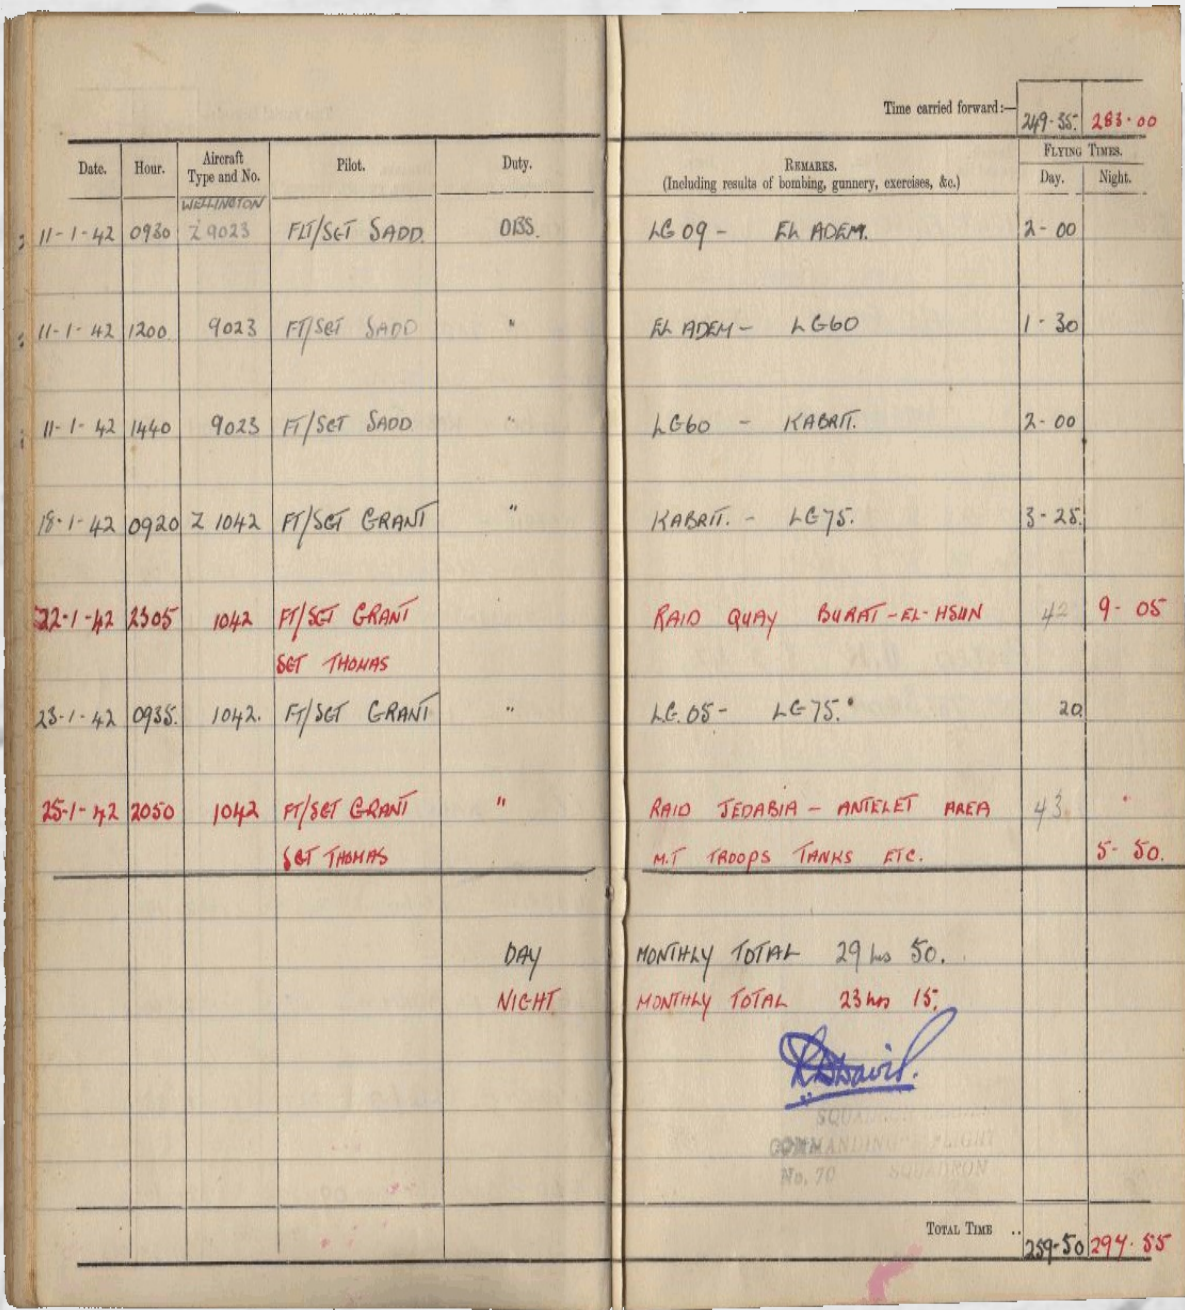 Time carried forward:— 249-35. 283.00
Date. Hour. Aircraft Type and No. Pilot. Duty. REMARKS. (Including results of bombing, gunnery, exercises, &c.) FLYING TIMES. Day. Night.
WELLINGTON
11-1-42 0930 Z 9023 FLT/SGT SADD. OBS. LG 09 - EL ADEM. 2-00
11-1-42 1200 9023 FT/SGT SADD " EL ADEM - LG60 1-30
11-1-42 1440 9023 FT/SGT SADD " LG60 - KABRIT. 2-00
18-1-42 0920 Z 1042 FT/SGT GRANT " KABRIT. - LG 75. 3-25.
22-1-42 2305 1042 FT/SGT GRANT RAID QUAY BURAT-EL-HSUN 42 9-05
SGT THOMAS
23-1-42 0935. 1042. FT/SGT GRANT " LG.05 - LG 75. 20
25-1-42 2050 1042 FT/SGT GRANT " RAID JEDABIA - ANTELET AREA 43
SGT THOMAS M.T TROOPS TANKS ETC. 5-50.
DAY MONTHLY TOTAL 29 hrs 50.
NIGHT MONTHLY TOTAL 23 hrs 15.
SQUADRON
COMMANDING FLIGHT
No. 70 SQUADRON
TOTAL TIME .. 259-50 297.55